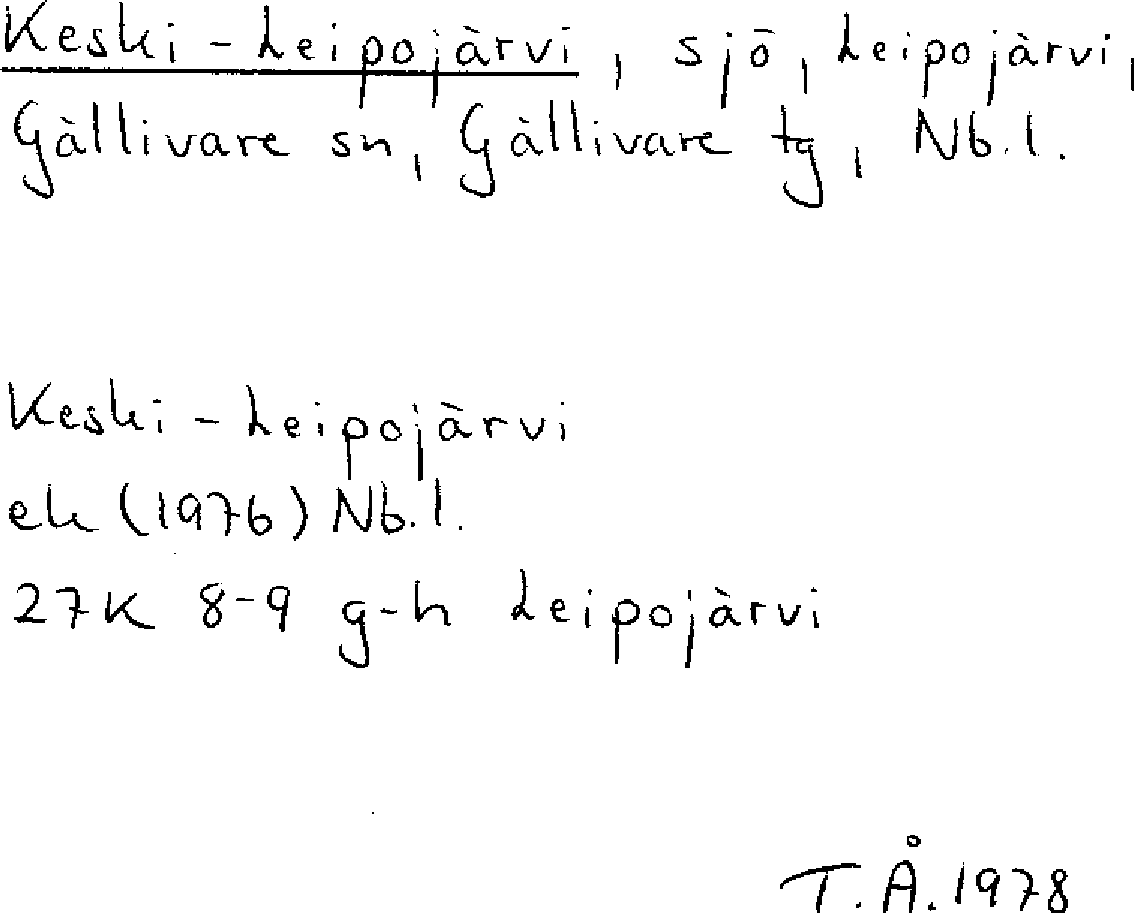 Keski-Leipojärvi, sjö, Leipojärvi,
Gällivare sn, Gällivare tg, Nb.l.
Keski-Leipojärvi
ek (1976) Nb.l.
27K 8-9 g-h Leipojärvi
T.Å.1978